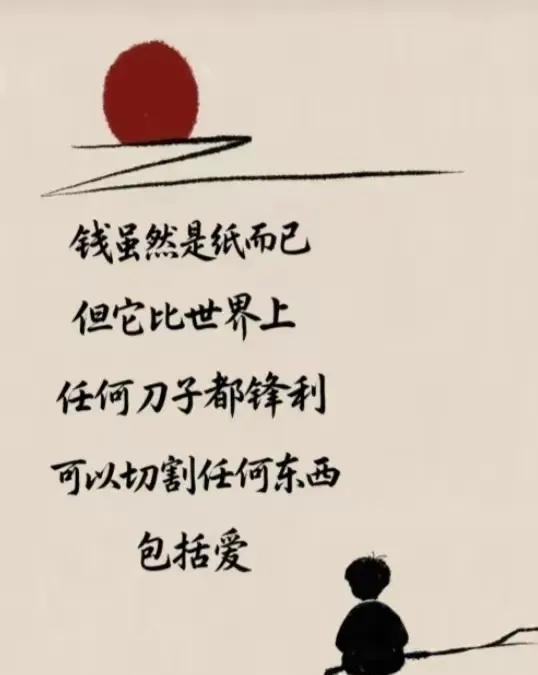 钱虽然是纸而已
但它比世界上
任何刀子都锋利
可以切割任何东西
包括爱